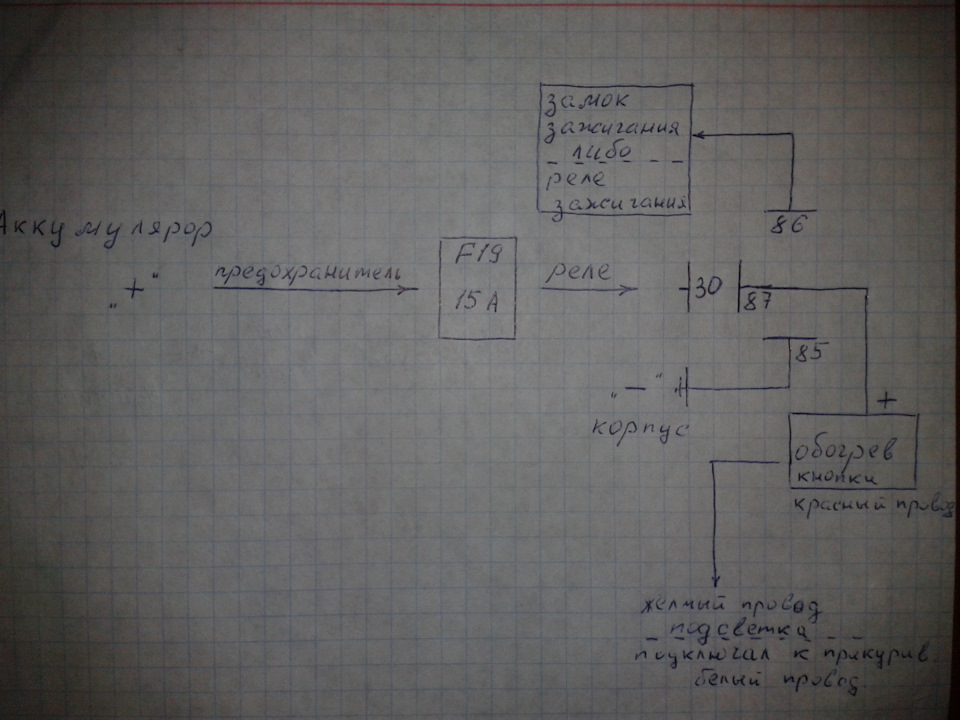 замок
зажигания
либо
реле
зажигания
86
Аккумулярор
„+“
предохранитель
F19
15А
реле
30
87
85
„–“
корпус
+
обогрев
кнопки
красный провод
желтый провод
подсветка
подключал к прикурив.
белый провод.